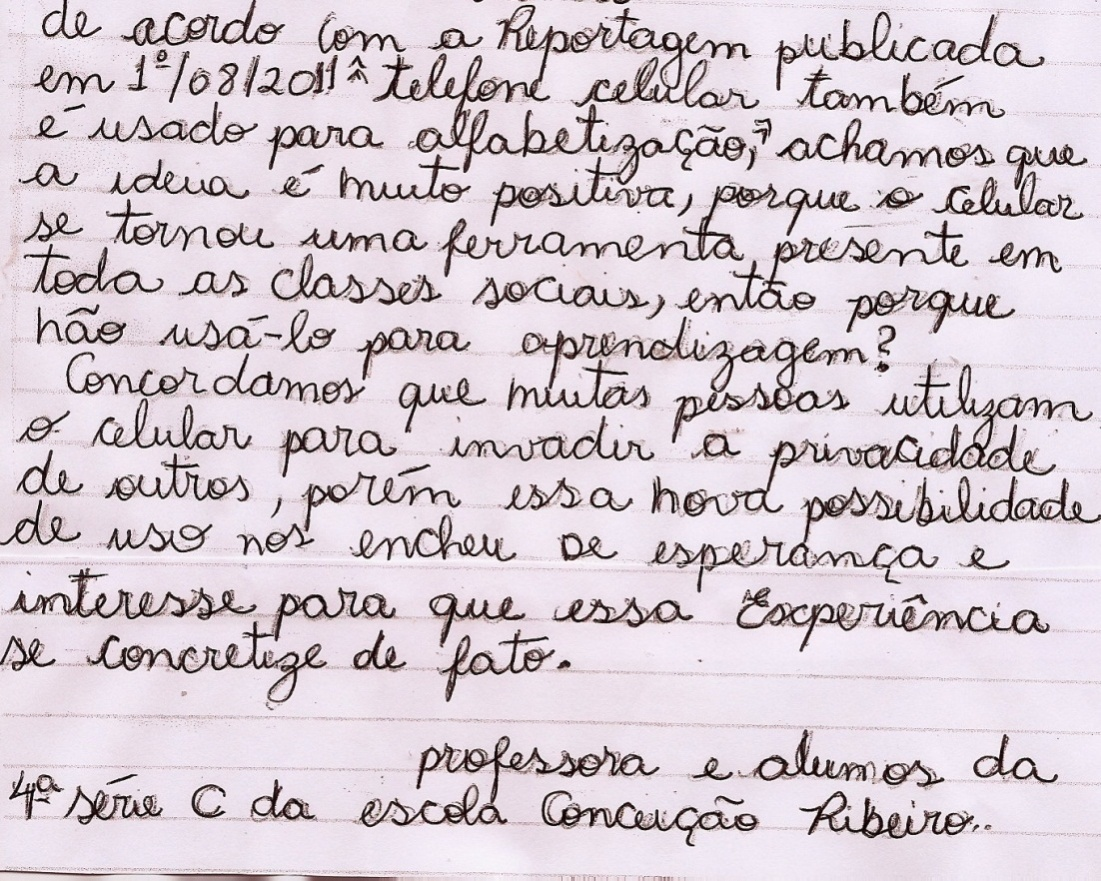 de acordo com a Reportagem publicada
em 1º/08/2011 "telefone celular também
é usado para alfabetização," achamos que
a ideia é muito positiva, porque o celular
se tornou uma ferramenta presente em
toda as classes sociais, então porque
não usá-lo para aprendizagem?
Concordamos que muitas pessoas utilizam
o celular para invadir a privacidade
de outros, porém essa nova possibilidade
de uso nos encheu de esperança e
interesse para que essa Experiência
se concretize de fato.
professora e alunos da
4ª série C da escola Conceição Ribeiro..